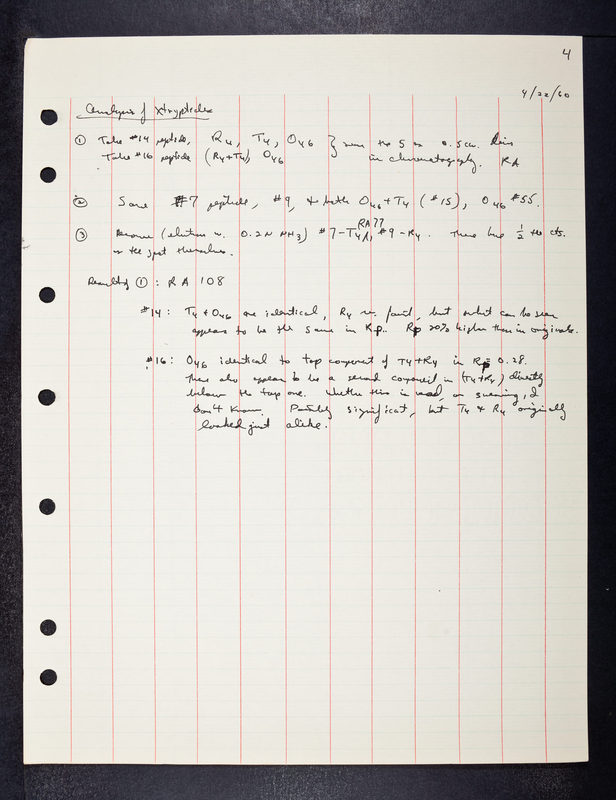 4
4/22/60
Analysis of
① Take #14 peptide, R4, T4, O46 } run the 5 x 0.5 cm.
Take #16 peptide (R4+T4) O46 in chromatography. RA
② Same #7 peptide, #9, + both O46+T4 (#15), O46 #55.
RA77
③ (elution w. 0.2N NH3) #7-T4, #9-R4. These have 1/2 the cts.
in the just themselves.
Results of ①: RA 108
#14: T4 + O46 are identical, R4 v. faint, but what can be seen
appears to be the same in Rp. Rp 20% higher than in originals.
#16: O46 identical to top component of T4+R4 in Rp = 0.28.
There also appear to be a second component in (T4+R4) directly
below the top one. Whether this is real, or smearing, I
don't know. Possibly significant, but T4 + R4 originally
looked just alike.